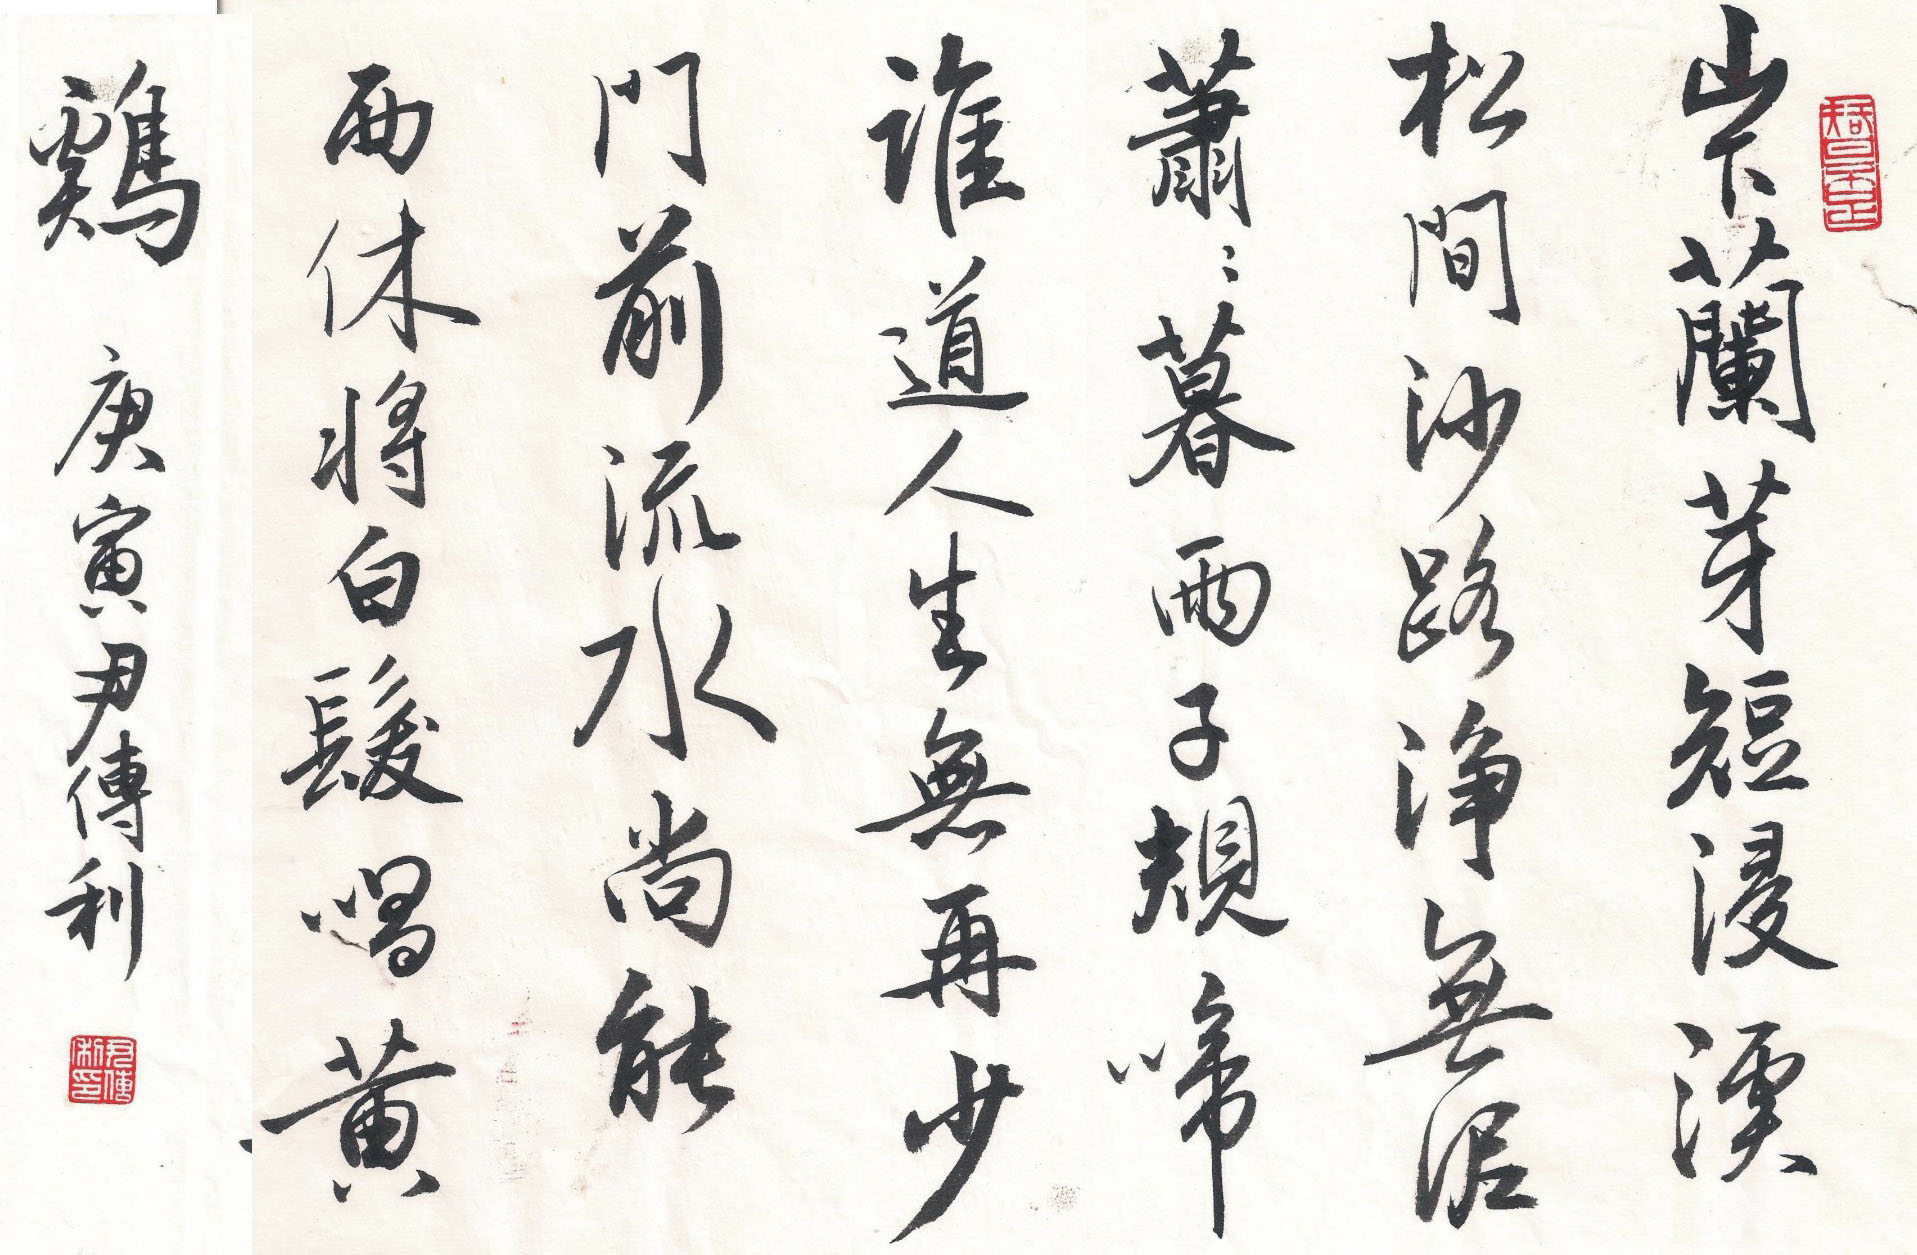 山下蘭芽短浸溪
松間沙路淨無泥
蕭〻暮雨子規啼
誰道人生無再少
門前流水尚能
西休將白髮唱黃
鷄 庚寅尹傳利
尹傳利印